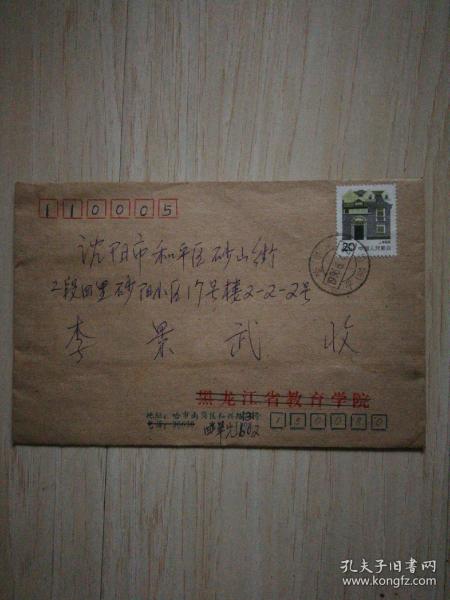 110005
20
中国人民邮政
沈阳市和平区砂山街
二段四里砂阳小区17号楼2-2-2号
李景武 收
黑龙江省教育学院
地址：哈市南岗区和兴路13号
150080
孔夫子旧书网
www.kongfz.com